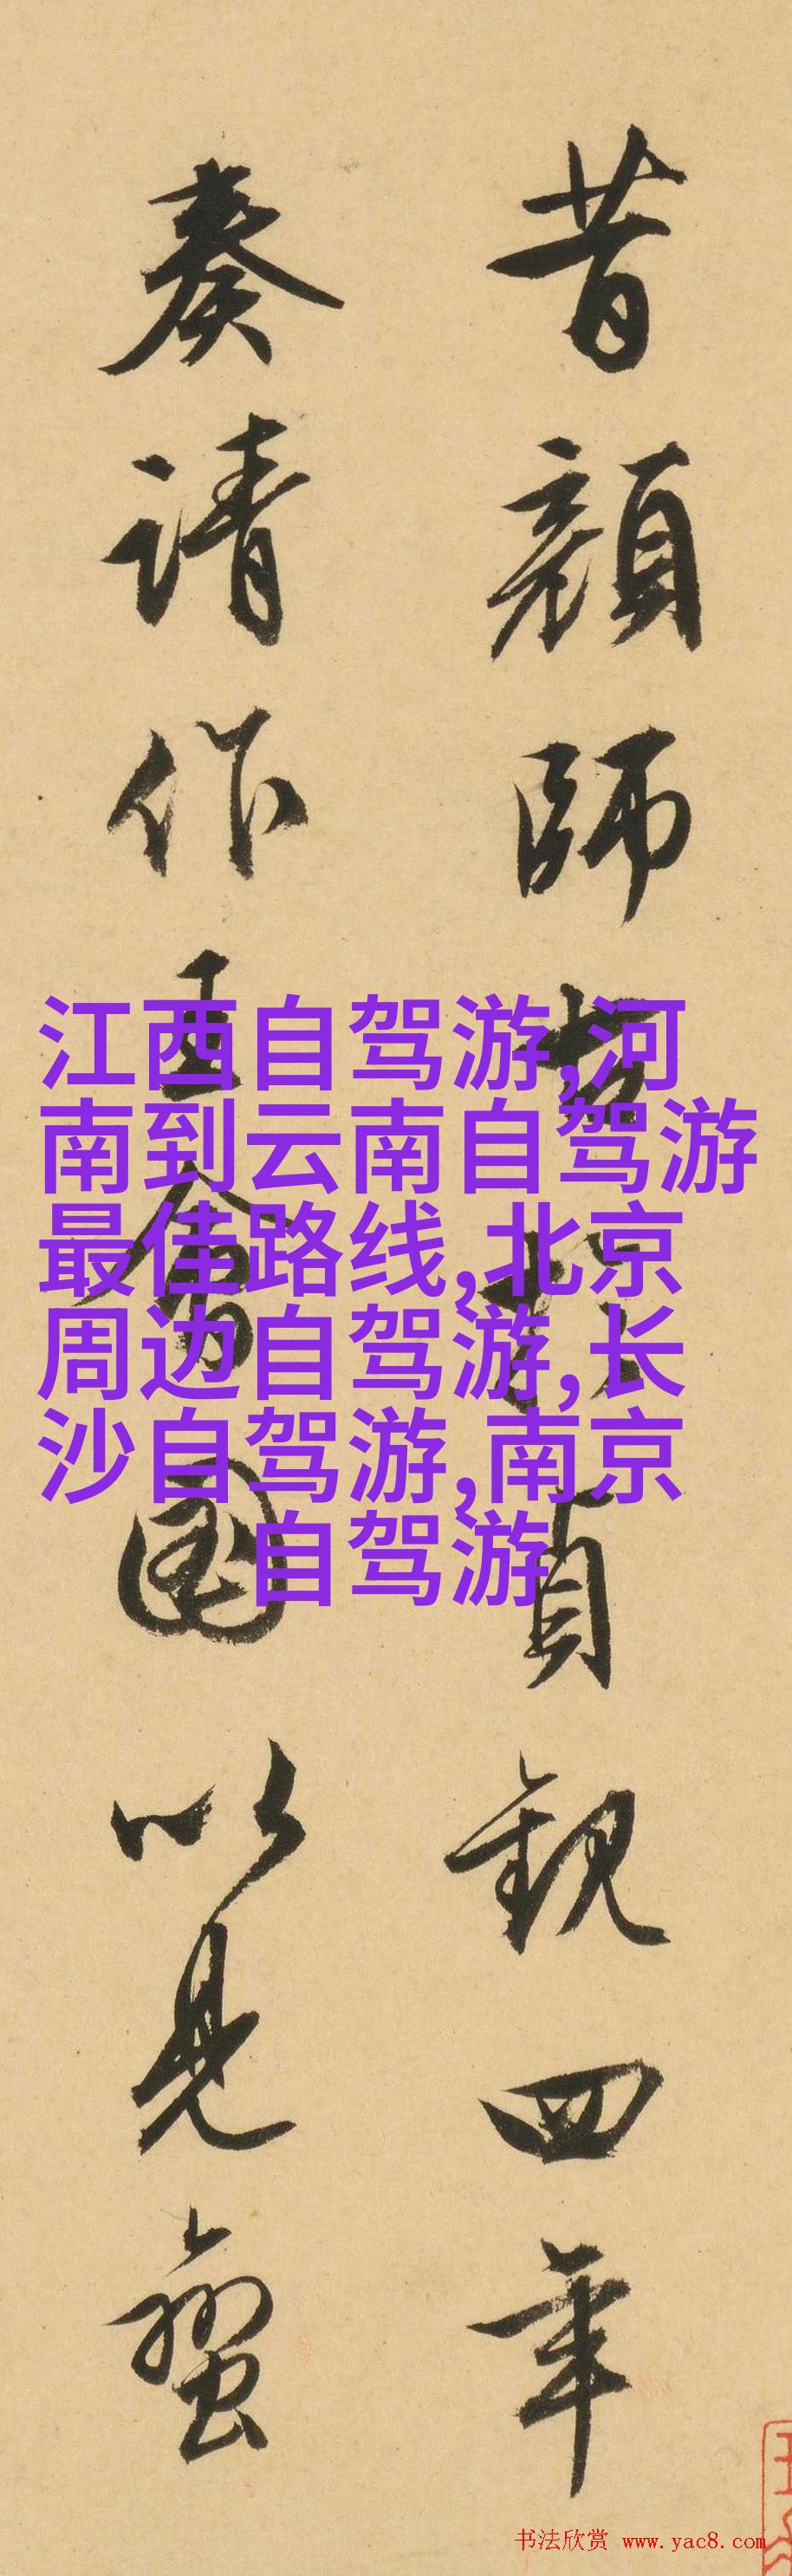 昔顏師古於貞觀四年
奏請作王會圖以見蠻
江西自驾游,河
南到云南自驾游
最佳路线,北京
周边自驾游,长
沙自驾游,南京
自驾游
书法欣赏 www.yac8.com